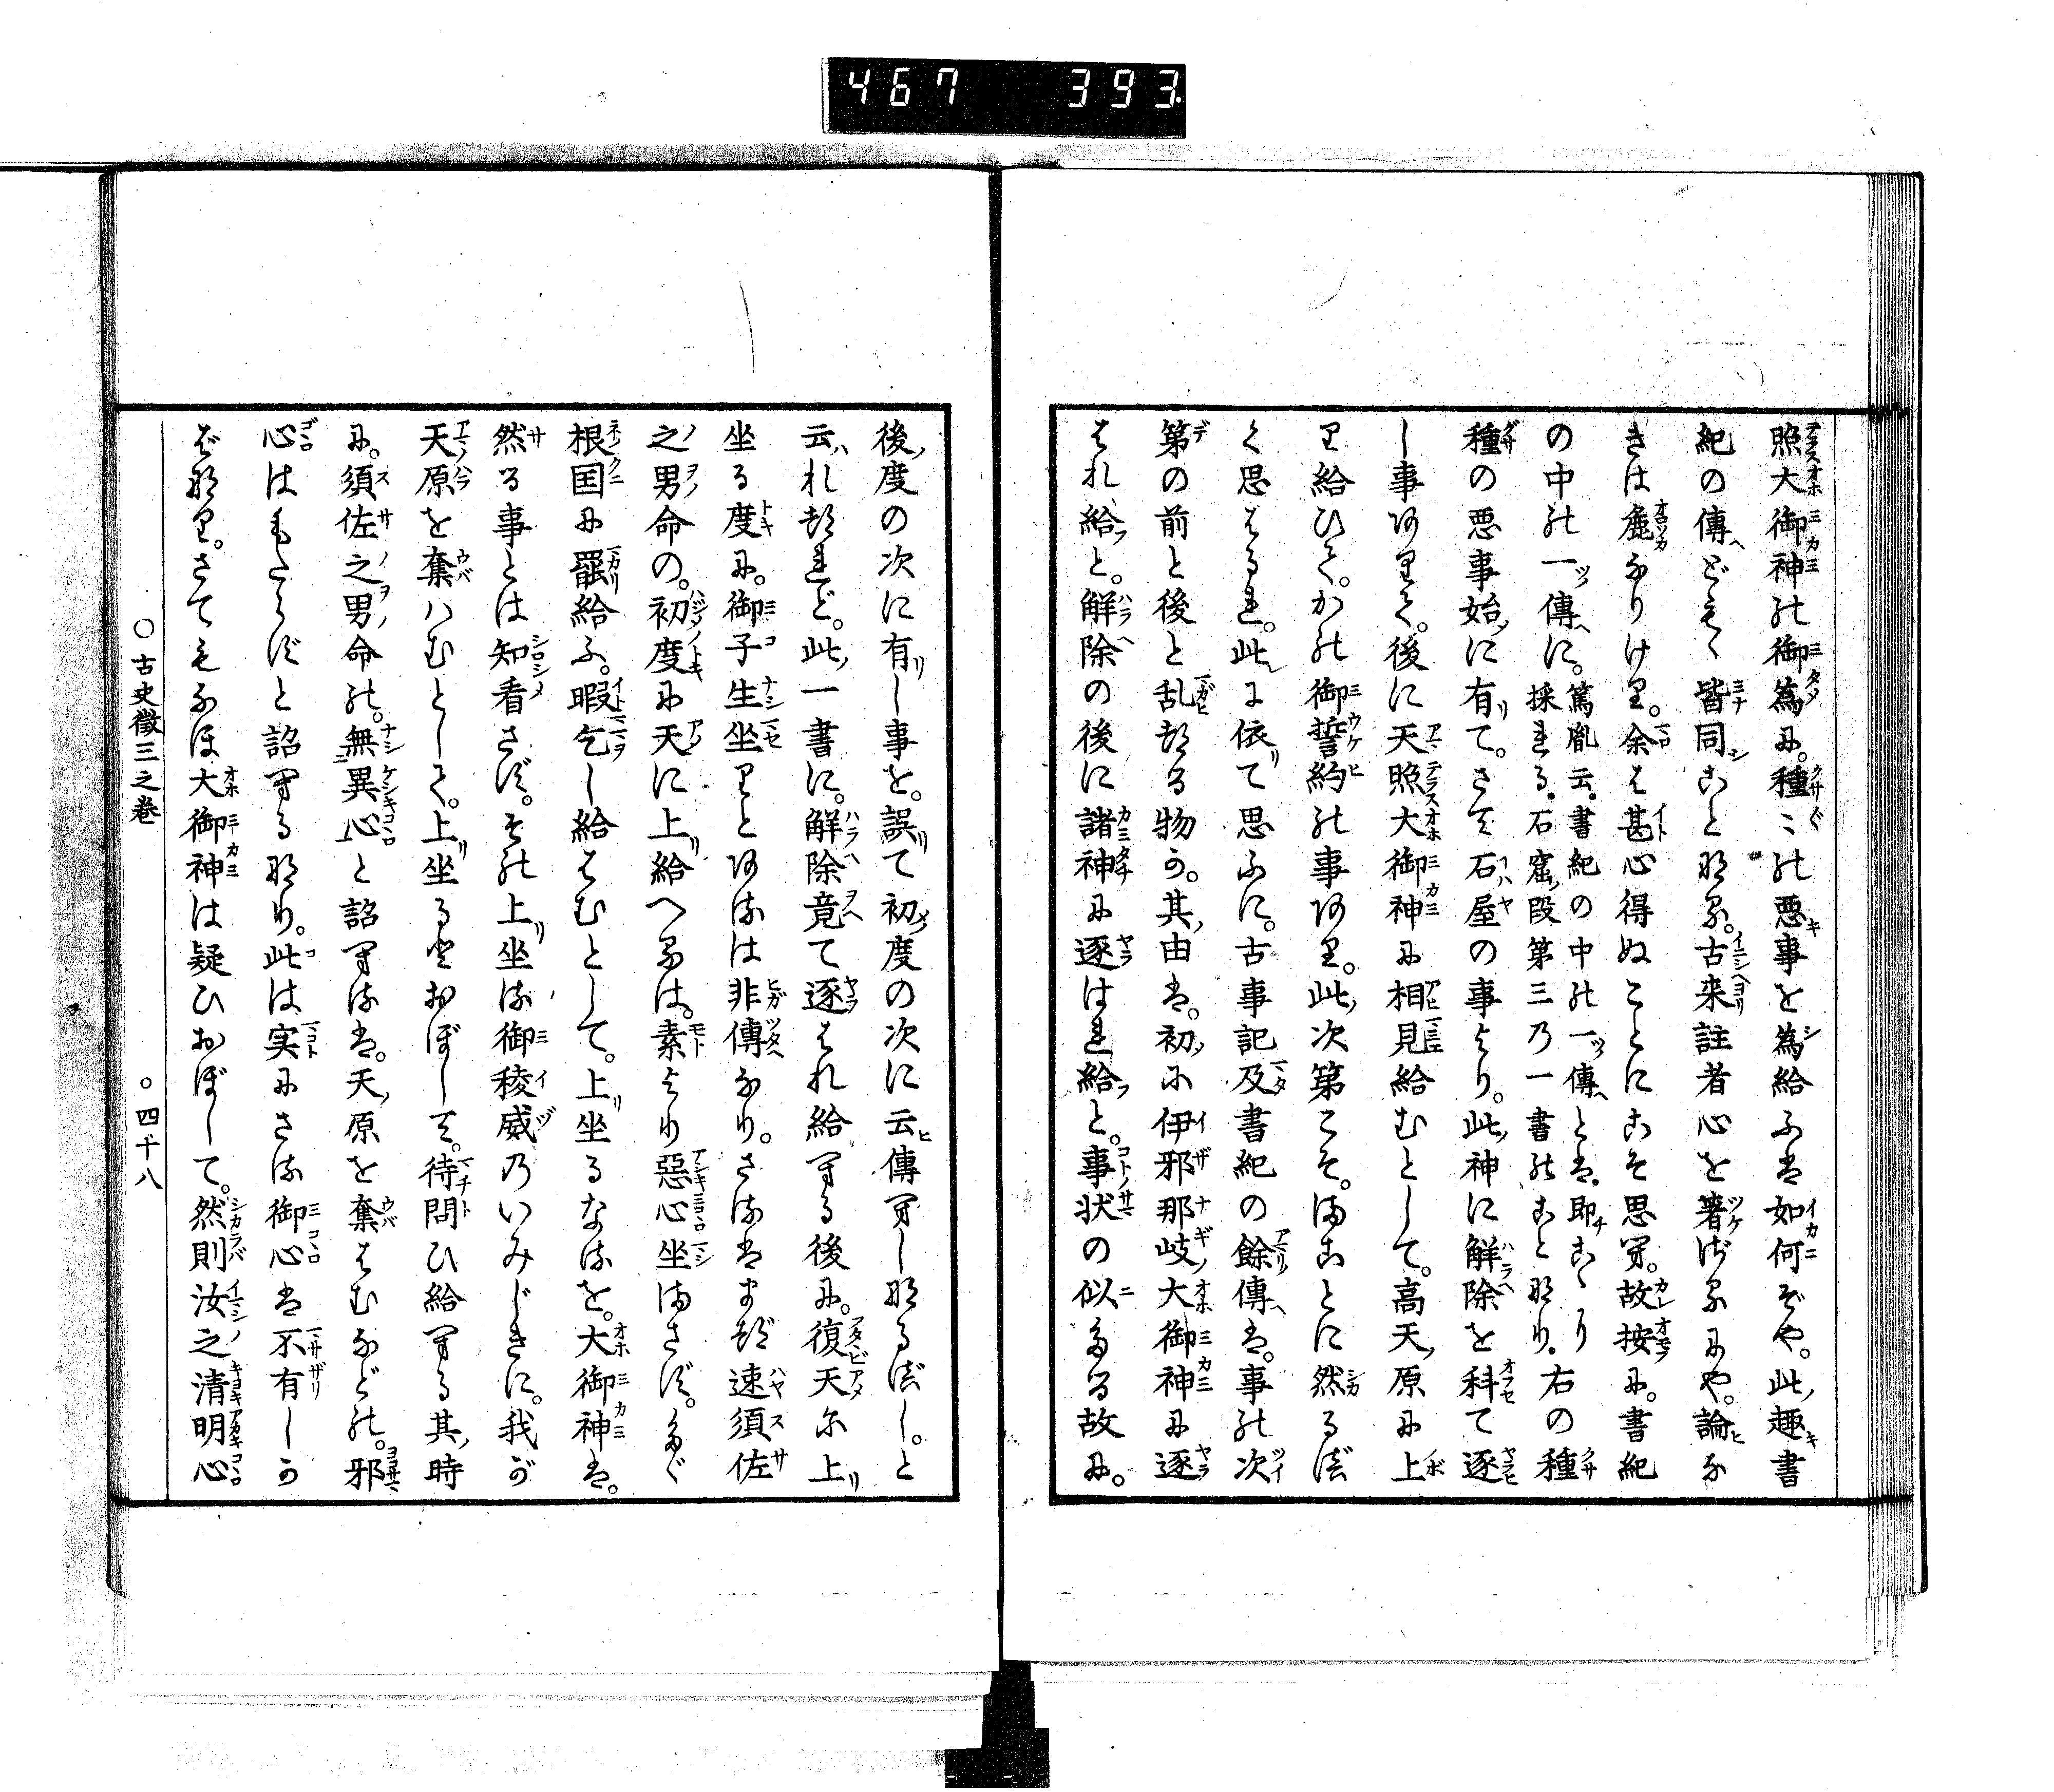 467 393.
照大御神の御為に。種々の悪事を為給ふは如何ぞや。此趣書
紀の傳ども、皆同こと也。古来註者心を著ざるにや。論な
きは麁なりけり。余は甚心得ぬことにこそ思ゆ。故按に。書紀
の中の一傳に。
篤胤云。書紀の中の一傳とは。即こゝり
採れる。石窟段第三乃一書のこと也。
右の種
種の悪事始に有て。さて石屋の事より。此神に解除を科て逐
し事ありて。後に天照大御神に相見給むとして。高天原に上
り給ひて。かの御誓約の事あり。此次第こそ。まことに然るべ
く思はるれ。此に依て思ふに。古事記及書紀の餘傳は。事の次
第の前と後と乱れる物か。其由は。初に伊邪那岐大御神に逐
はれ給と。解除の後に諸神に逐はれ給と。事状の似たる故に。
後度の次に有し事を。誤て初度の次に云傳へしなるべし。と
云れたれど。此一書に。解除竟て逐はれ給へる後に。復天尓上
坐る度に。御子生坐りとあるは非傳なり。さるはまづ速須佐
之男命の。初度に天に上給へるは。素より惡心坐まさず。たゞ
根国に罷給ふ。暇乞し給はむとして。上坐るなるを。大御神は。
然る事とは知看さず。その上坐る御稜威乃いみじきに。我が
天原を奪はむとして。上坐るとおぼして。待問ひ給へる其時
に。須佐之男命の。無異心と詔へるは。天原を奪はむなどの。邪
心はもたらずと詔へる也。此は実にさる御心は不有しか
ば也。さてもなほ大御神は疑ひおぼして。然則汝之清明心
〇古史徴三之巻
〇四十八